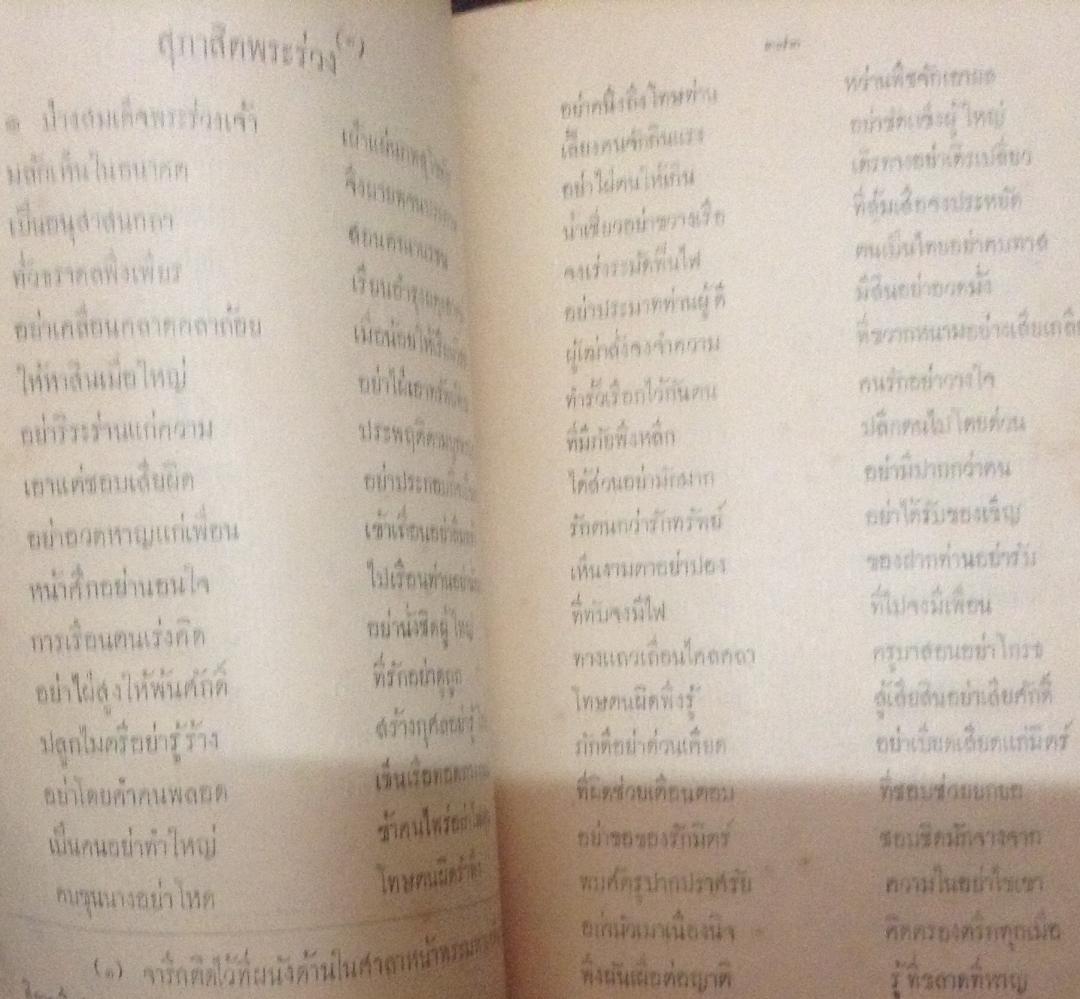 สุภาสิตพระร่วง(๑)
๑ ปางสมเด็จพระร่วงเจ้า เผ้าแผ่นภพสุโขทัย
มลักเห็นในอนาคต
เป็นอนุสาสนกถา สอนคณานรชน
ทั่วธราดลพึงเพียร เรียนอำรุง
อย่าเคลื่อนคลาดคลาถ้อย เมื่อน้อยให้เรียน
ให้หาสินเมื่อใหญ่ อย่าใฝ่เอาทรัพย์
อย่าริระร่านแก่ความ ประพฤติตาม
เอาแต่ชอบเสียผิด อย่าประกอบกิจ
อย่าอวดหาญแก่เพื่อน เข้าเถื่อนอย่าลืม
หน้าศึกอย่านอนใจ ไปเรือนท่านอย่า
การเรือนตนเร่งคิด อย่านั่งชิดผู้ใหญ่
อย่าใฝ่สูงให้พ้นศักดิ์ ที่รักอย่าดูถูก
ปลูกไมตรีอย่ารู้ร้าง สร้างกุศลอย่ารู้
อย่าโดยคำคนพลอด เข็นเรือทอด
เป็นคนอย่าทำใหญ่ ข้าคนไพร่อย่า
คบขุนนางอย่าโหด โทษตนผิดรำพึง
(๑) จารึกติดไว้ที่ผนังด้านในศาลาหน้า
๓๗๓
อย่าคนึงถึงโทษท่าน หว่านพืชจักเอาผล
เลี้ยงคนจักกินแรง อย่าขัดแข็งผู้ใหญ่
อย่าใฝ่ตนให้เกิน เดิรทางอย่าเดิรเปลี่ยว
น้ำเชี่ยวอย่าขวางเรือ ที่ซุ้มเสือจงประหยัด
จงเร่งระมัดฟืนไฟ ตนเป็นไทยอย่าคบทาส
อย่าประมาทท่านผู้ดี มีสินอย่าอวดมั่ง
ผู้เฒ่าสั่งจงจำความ ที่ขวากหนามอย่างเสียเกลือก
ทำรั้วเรือกไว้กันตน คนรักอย่าวางใจ
ที่มีภัยพึงหลีก ปลีกตนไปโดยด่วน
ได้ส่วนอย่ามักมาก อย่ามีปากกว่าคน
รักตนกว่ารักทรัพย์ อย่าได้รับของเข็ญ
เห็นงามตาอย่าปอง ของฝากท่านอย่ารับ
ที่ทับจงมีไฟ ที่ไปจงมีเพื่อน
ทางแถวเถื่อนไคลคลา ครูบาสอนอย่าโกรธ
โทษตนผิดพึงรู้ สู้เสียสินอย่าเสียศักดิ์
ภักดีอย่าด่วนเคียด อย่าเบียดเสียดแก่มิตร์
ที่ผิดช่วยเตือนตอบ ที่ชอบช่วยยกยอ
อย่าขอของรักมิตร์ ชอบชิดมักจางจาก
พบศัตรูปากปราศรัย ความในอย่าไขเขา
อย่ามัวเมาเนืองนิจ คิดตรองตรึกทุกเมื่อ
พึงผันเผื่อต่อญาติ รู้ที่ขลาดที่หาญ